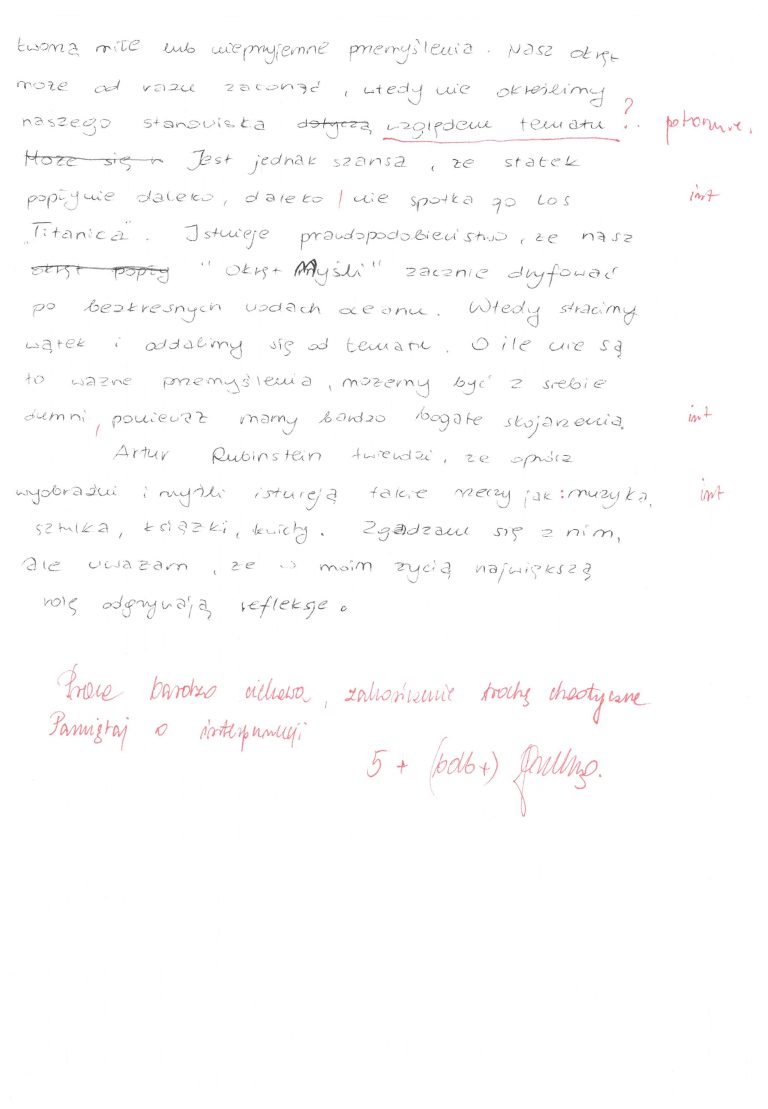 tworzą miłe lub nieprzyjemne przemyślenia. Nasz okręt
może od razu zatonąć, wtedy nie określimy
naszego stanowiska dotyczą względem tematu ?. potoczne.
Może się Jest jednak szansa, że statek
popłynie daleko, daleko / nie spotka go los int
"Titanica". Istnieje prawdopodobieństwo, że nasz
okręt popły "Okręt Myśli" zacznie dryfować
po bezkresnych wodach oceanu. Wtedy stracimy
wątek i oddalimy się od tematu. O ile nie są
to ważne przemyślenia, możemy być z siebie
dumni, ponieważ mamy bardzo bogate skojarzenia. int
Artur Rubinstein twierdzi, że oprócz
wyobraźni i myśli istnieją takie rzeczy jak: muzyka, int
sztuka, książki, kwiaty. Zgadzam się z nim,
ale uważam, że w moim życią największą
rolę odgrywają refleksje.
Praca bardzo ciekawa, zakończenie trochę chaotyczne
Pamiętaj o interpunkcji
5+ (bdb+)